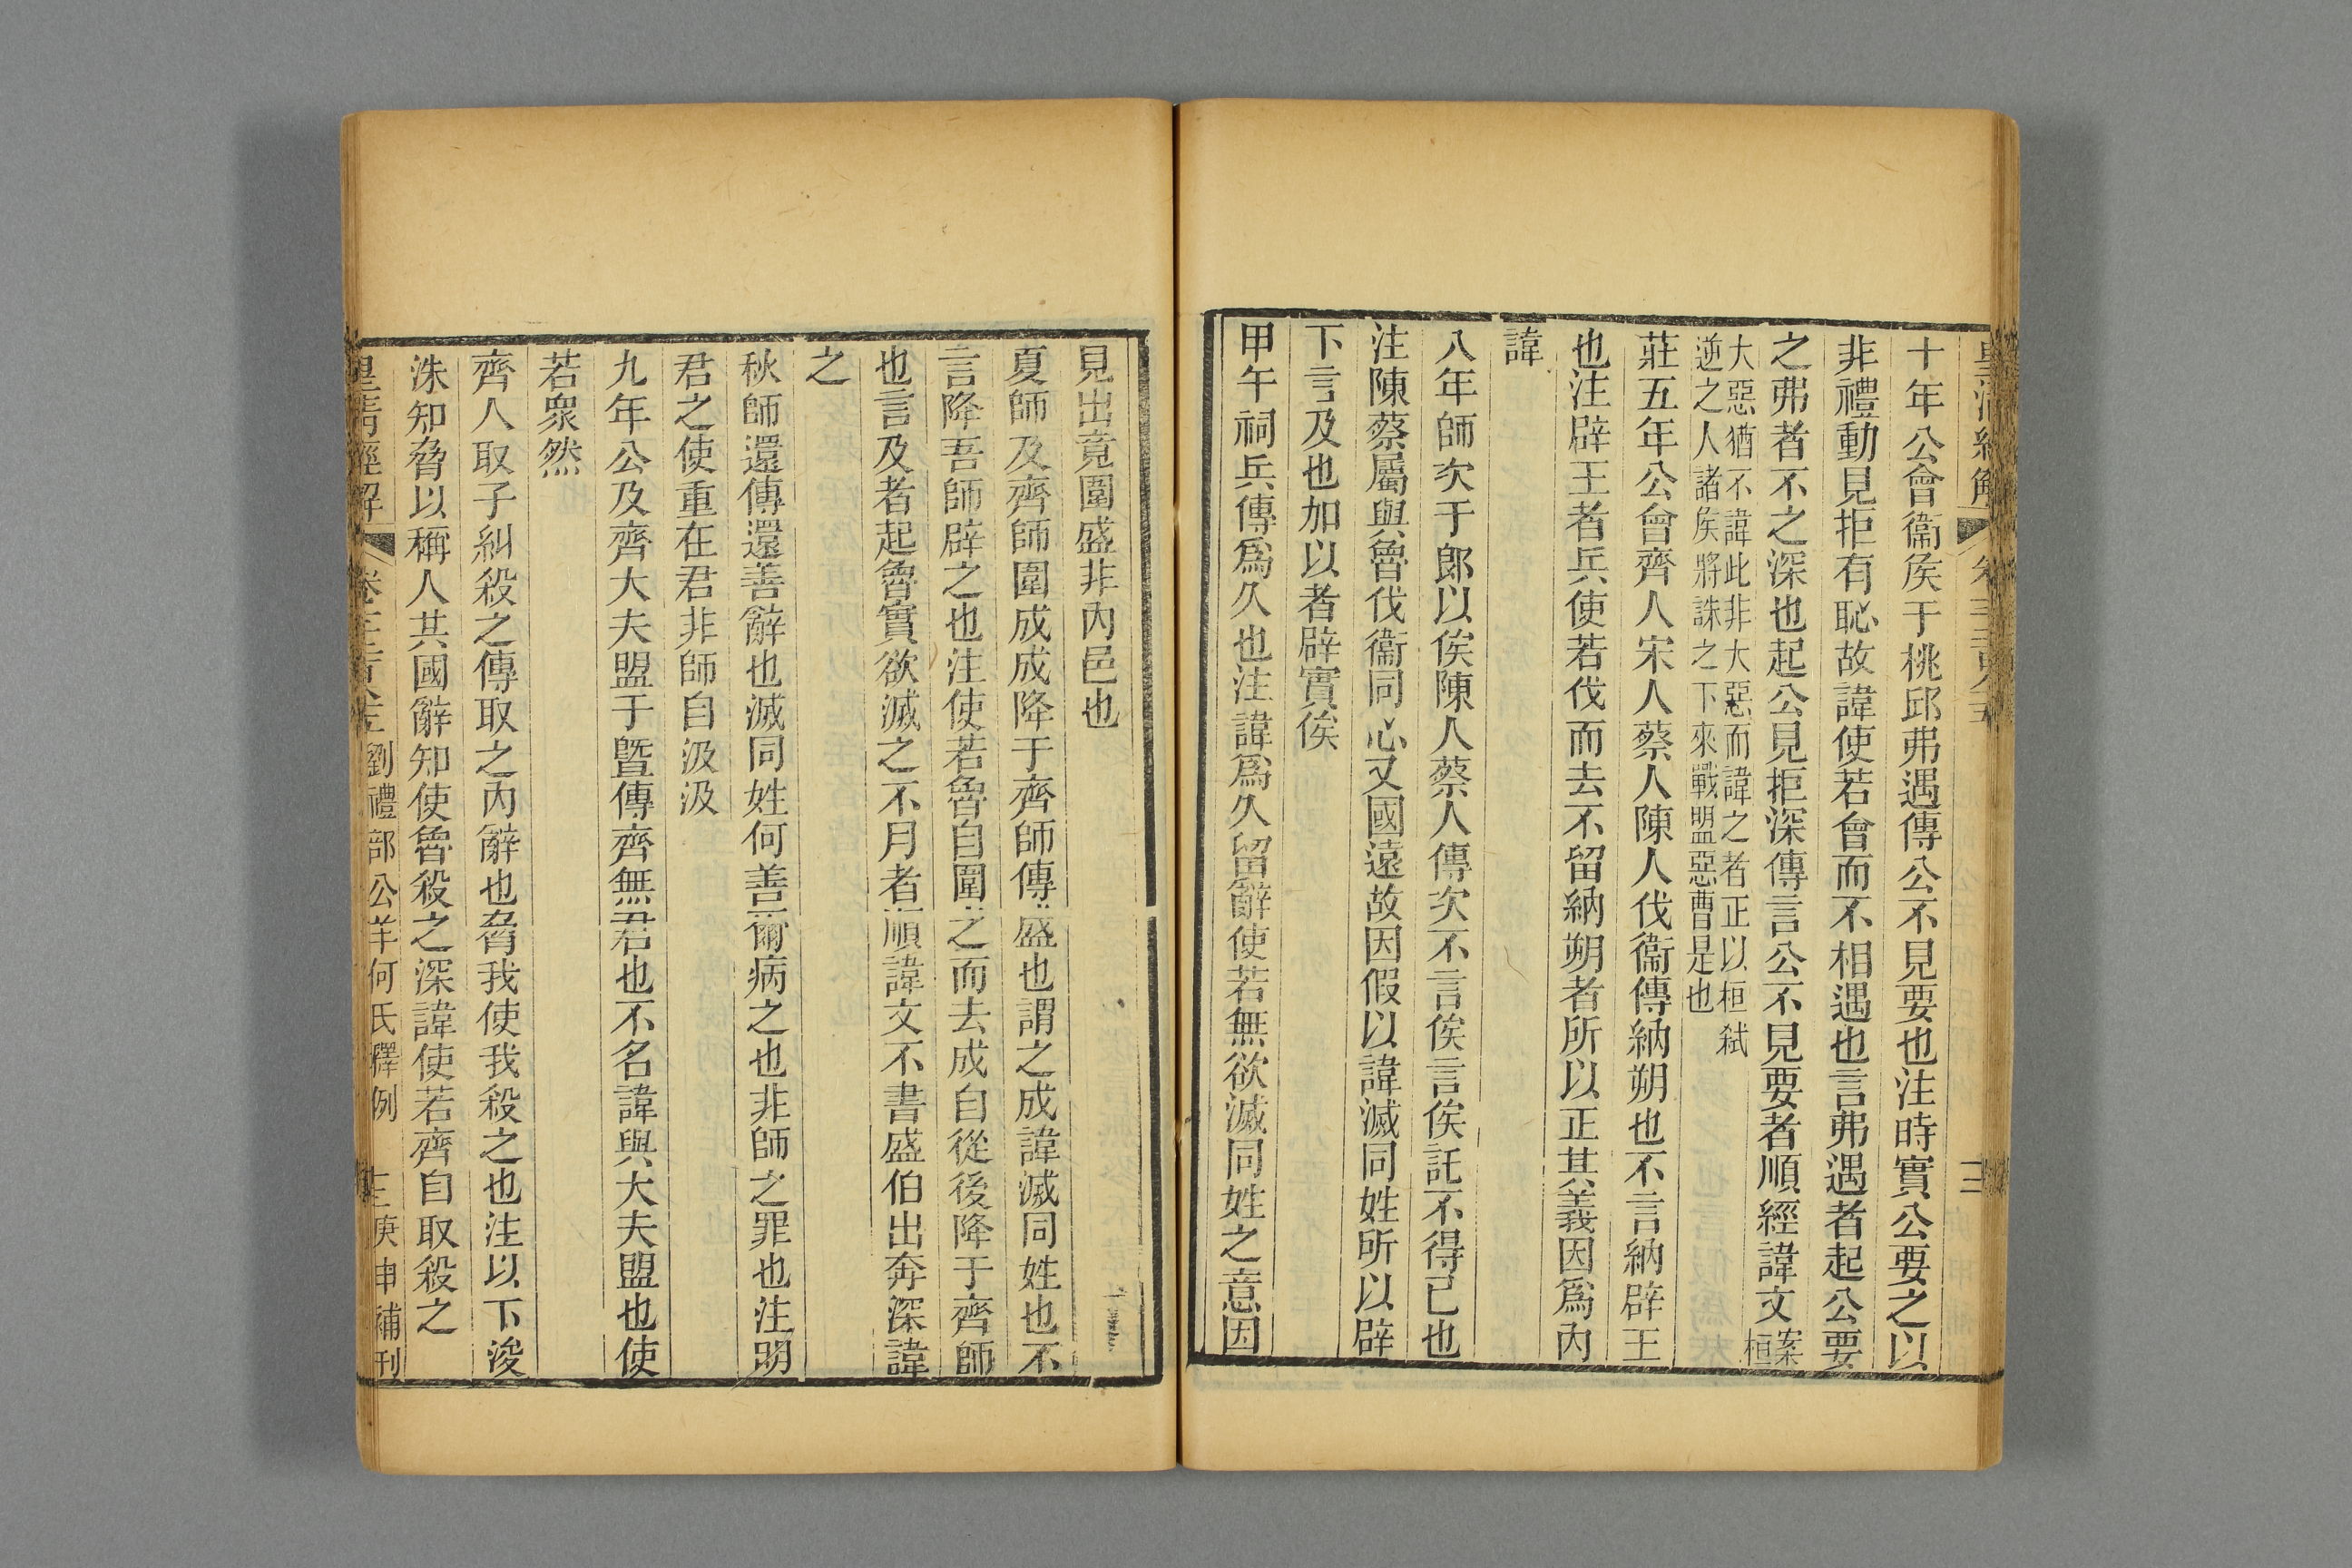 皇清經解
十年公會衞矦于桃邱弗遇傳公不見要也注時實公要之以
非禮動見拒有恥故諱使若會而不相遇也言弗遇者起公要
之弗者不之深也起公見拒深傳言公不見要者順經諱文案桓
大惡猶不諱此非大惡而諱之者正以桓弑
逆之人諸矦將誅之下來戰盟惡曹是也
莊五年公會齊人宋人蔡人陳人伐衞傳納朔也不言納辟王
也注辟王者兵使若伐而去不留納朔者所以正其義因爲內
諱
八年師次于郎以俟陳人蔡人傳次不言俟言俟託不得已也
注陳蔡屬與魯伐衞同心又國遠故因假以諱滅同姓所以辟
下言及也加以者辟實俟
甲午祠兵傳爲久也注諱爲久留辭使若無欲滅同姓之意因
見出竟圍盛非內邑也
夏師及齊師圍成成降于齊師傳盛也謂之成諱滅同姓也不
言降吾師辟之也注使若魯自圍之而去成自從後降于齊師
也言及者起魯實欲滅之不月者順諱文不書盛伯出奔深諱
之
秋師還傳還善辭也滅同姓何善爾病之也非師之罪也注明
君之使重在君非師自汲汲
九年公及齊大夫盟于暨傳齊無君也不名諱與大夫盟也使
若衆然
齊人取子糾殺之傳取之內辭也脅我使我殺之也注以下浚
洙知脅以稱人共國辭知使魯殺之深諱使若齊自取殺之
皇淸經解 劉禮部公羊何氏釋例 庚申補刊